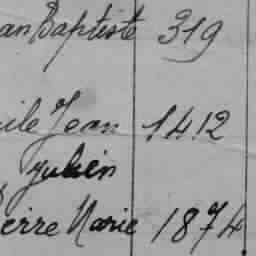 an Baptiste 319
ile Jean 1412
Julien
erre Marie 1874